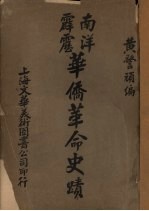 黃警頑編
南洋
霹靂
華僑革命史蹟
上海文華美術圖書公司印行